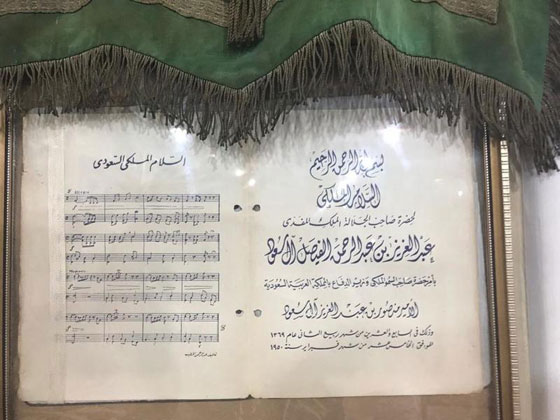 بسم الله الرحمن الرحيم
السلام الملكي
لحضرة صاحب الجلالة الملك المفدى
عبد العزيز بن عبد الرحمن الفيصل آل سعود
بأمر حضرة صاحب السمو الملكي وزير الدفاع بالمملكة العربية السعودية
الأمير منصور بن عبد العزيز آل سعود
وذلك في السابع والعشرين من شهر ربيع الثاني عام ١٣٦٩
الموافق الخامس عشر من شهر فبراير سنة ١٩٥٠
السلام الملكي السعودي